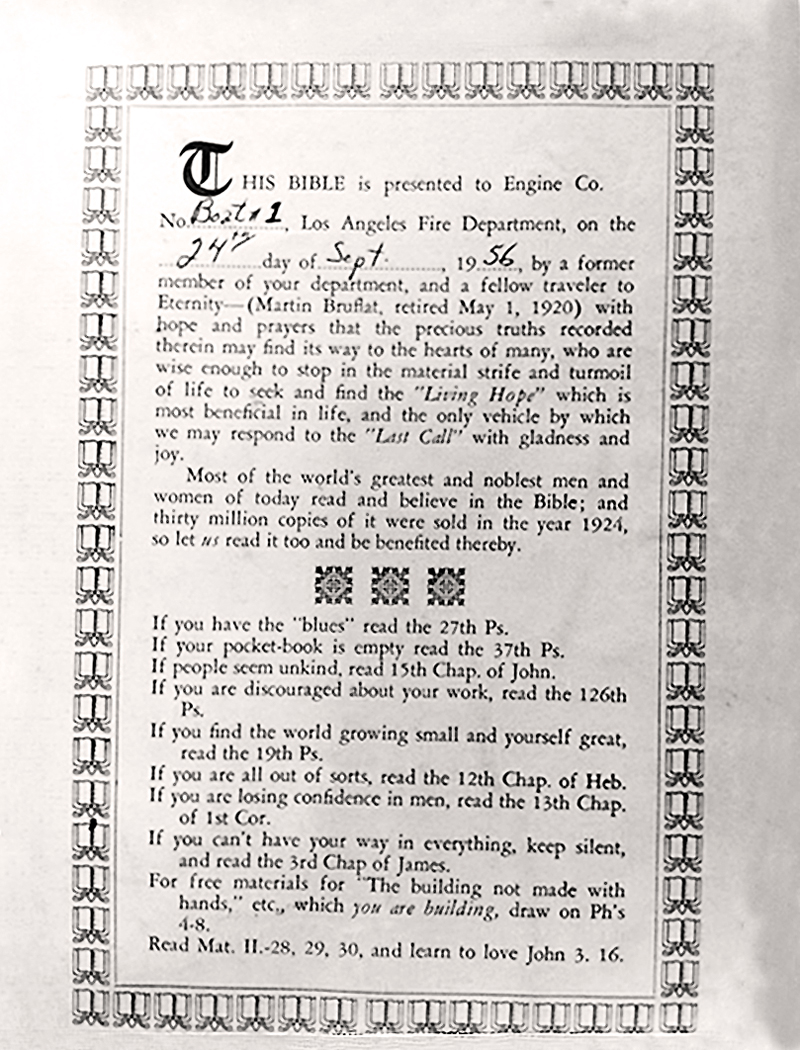 THIS BIBLE is presented to Engine Co.
No. Boat #1, Los Angeles Fire Department, on the
24th day of Sept., 1956, by a former
member of your department, and a fellow traveler to
Eternity—(Martin Bruflat, retired May 1, 1920) with
hope and prayers that the precious truths recorded
therein may find its way to the hearts of many, who are
wise enough to stop in the material strife and turmoil
of life to seek and find the "Living Hope" which is
most beneficial in life, and the only vehicle by which
we may respond to the "Last Call" with gladness and
joy.
Most of the world's greatest and noblest men and
women of today read and believe in the Bible; and
thirty million copies of it were sold in the year 1924,
so let us read it too and be benefited thereby.
If you have the "blues" read the 27th Ps.
If your pocket-book is empty read the 37th Ps.
If people seem unkind, read 15th Chap. of John.
If you are discouraged about your work, read the 126th
Ps.
If you find the world growing small and yourself great,
read the 19th Ps.
If you are all out of sorts, read the 12th Chap. of Heb.
If you are losing confidence in men, read the 13th Chap.
of 1st Cor.
If you can't have your way in everything, keep silent,
and read the 3rd Chap of James.
For free materials for "The building not made with
hands," etc., which you are building, draw on Ph's
4-8.
Read Mat. II.-28, 29, 30, and learn to love John 3. 16.